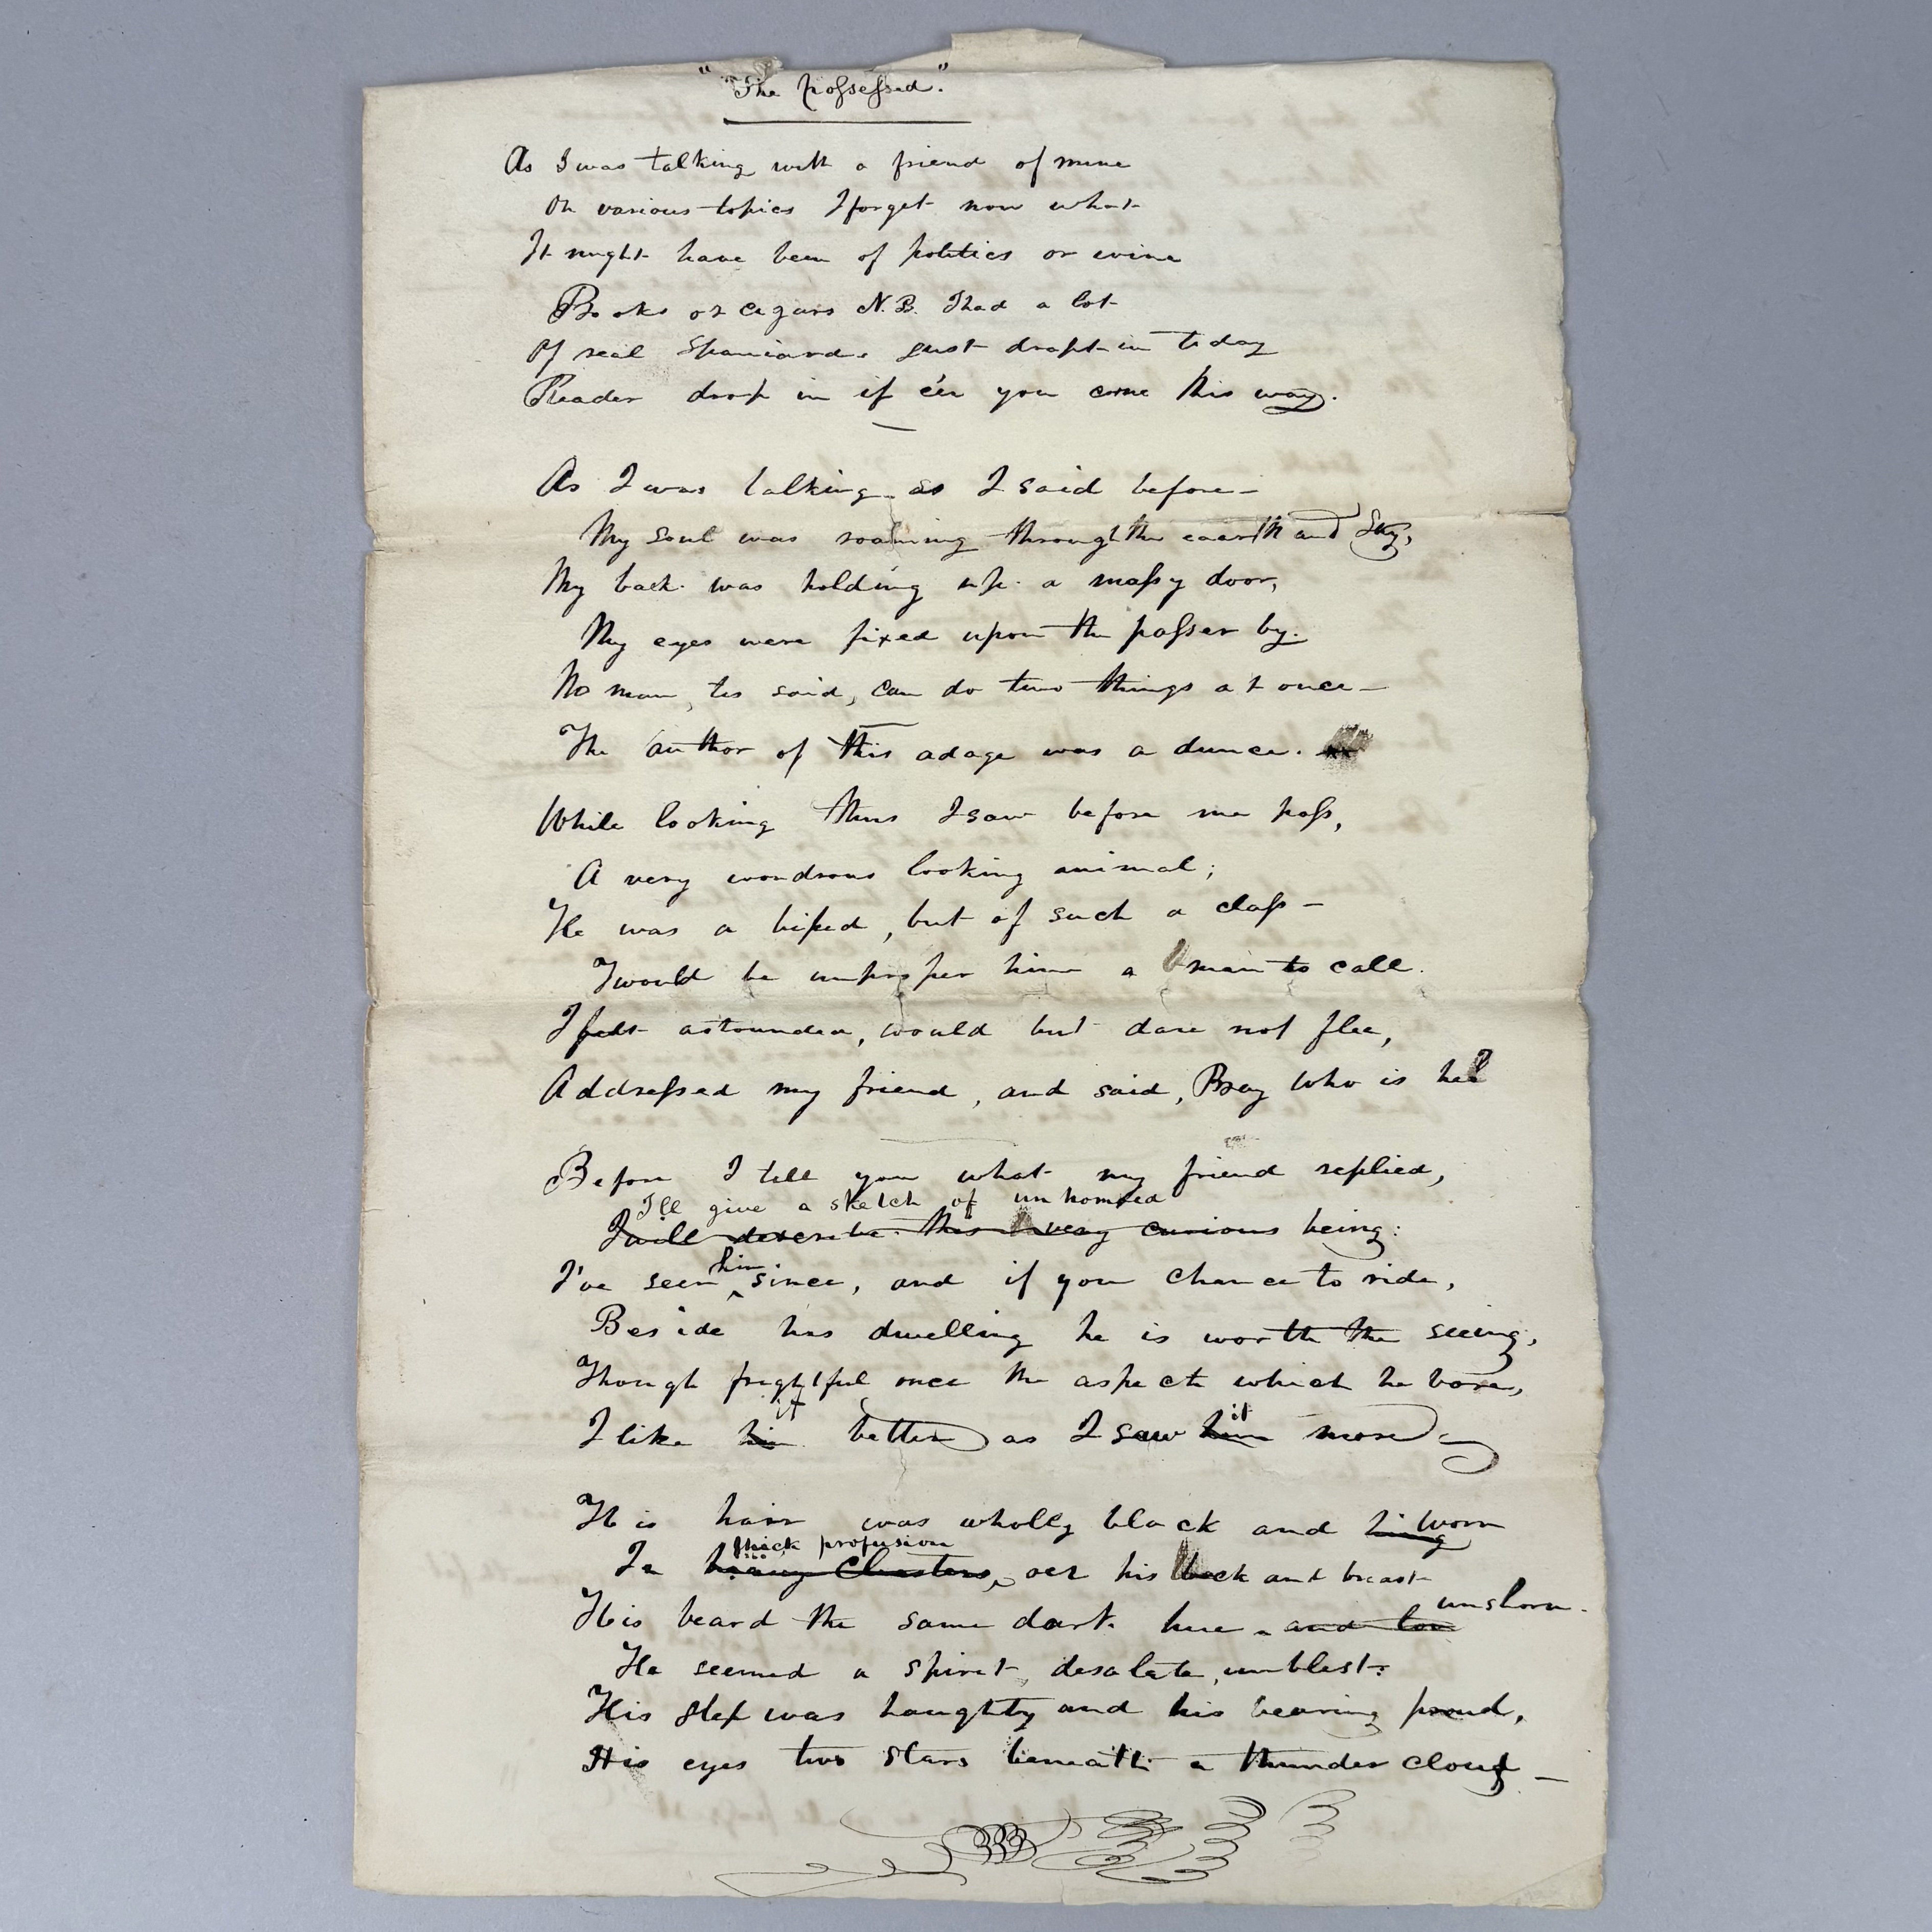 "The possessed."
As I was talking with a friend of mine
On various topics I forget now what
It might have been of politics or wine
Books or cigars N.B. I had a lot
Of real Spaniards just dropt in today
Reader drop in if e'er you come this way.
As I was talking as I said before –
My soul was roaming through the eaarth and Sky,
My back was holding up a massy door,
My eyes were fixed upon the passer by.
No man, tis said, can do two things at once –
The author of this adage was a dunce.
While looking thus I saw before me pass,
A very wondrous looking animal;
He was a biped, but of such a class –
Twould be improper him a man to call.
I felt astounded, would but dare not flee,
Addressed my friend, and said, Pray who is he?
Before I tell you what my friend replied,
I'll give a sketch of un homred
I will describe this very curious being:
I've seen him since, and if you chance to ride,
Beside his dwelling he is worth the seeing,
Though frightful once the aspect which he bore,
it it
I like him better as I saw him more –
His hair was wholly black and hung worn
thick profusion
In heavy Clusters, oer his back and breast
unshorn.
His beard the same dark hue – and lon
He seemed a spirit, desolate, unblest:
His step was haughty and his bearing proud,
His eyes two stars beneath a thunder cloud –